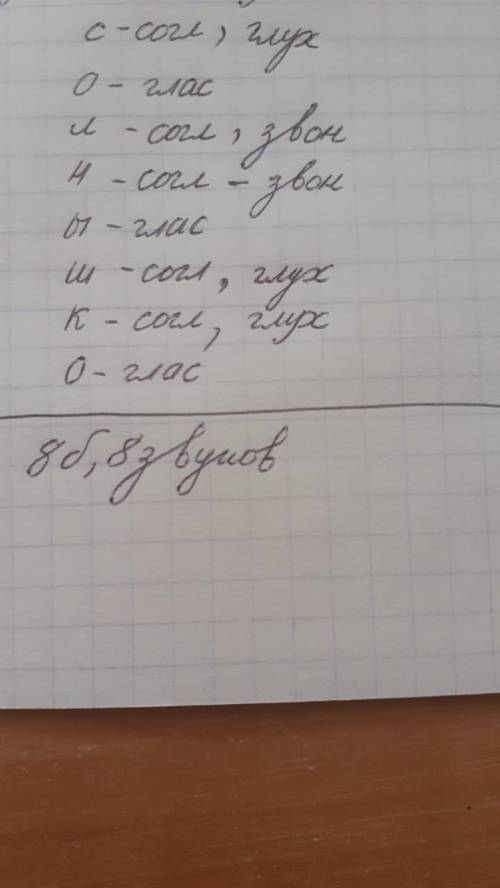 с - согл, глух
о - глас
л - согл, звон
н - согл - звон
ы - глас
ш - согл, глух
к - согл, глух
о - глас
8б, 8 звуков